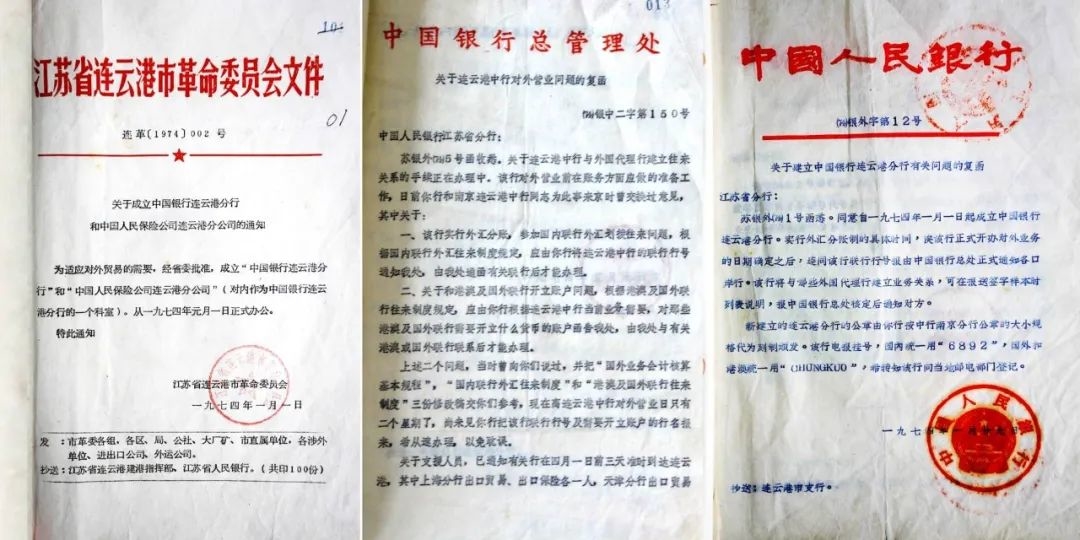 101
江苏省连云港市革命委员会文件
01
连革〔1974〕002号
关于成立中国银行连云港分行
和中国人民保险公司连云港分公司的通知
为适应对外贸易的需要,经省委批准,成立“中国银行连云港分
行”和“中国人民保险公司连云港分公司”(对内作为中国银行连云
港分行的一个科室)。从一九七四年元月一日正式办公。
特此通知
江苏省连云港市革命委员会
一九七四年一月一日
发:市革委各组,各区、局、公社、大厂矿、市直属单位,各涉外
单位、进出口公司、外运公司。
抄送:江苏省连云港建港指挥部、江苏省人民银行。(共印100份)
013
中国银行总管理处
关于连云港中行对外营业问题的复函
(74)银中二字第150号
中国人民银行江苏省分行:
苏银外(74)5号函收悉。关于连云港中行与外国代理行建立往来
关系的手续正在办理中。该行对外营业前在账务方面应做的准备工
作,日前你行和南京连云港中行同志为此事来京时曾交换过意见,
其中关于:
一、该行实行外汇分账,参加国内联行外汇划拨往来问题,根
据国内联行外汇往来制度规定,应由你行将连云港中行的联行行号
通知我处,由我处通函有关联行后才能办理。
二、关于和港澳及国外联行开立账户问题,根据港澳及国外联
行往来制度规定,应由你行根据连云港中行当前业务需要,对那些
港澳及国外联行需要开立什么货币的账户函告我处,由我处与有关
港澳或国外联行联系后才能办理。
上述二个问题,当时曾向你们说过,并把“国外业务会计核算
基本规程”,“国内联行外汇往来制度”和“港澳及国外联行往来
制度”三份修改稿交你们参考,现在离连云港中行对外营业日只有
二个星期了,尚未见你行把该行联行行号及需要开立账户的行名报
来,希从速办理,以免耽误。
关于支援人员,已通知有关行在四月一日前三天准时到达连云
港,其中上海分行出口贸易、出口保险各一人,天津分行出口贸易
中國人民銀行
(74)银外字第12号
关于建立中国银行连云港分行有关问题的复函
江苏省分行:
苏银外(74)1号函悉。同意自一九七四年一月一日起成立中国银行
连云港分行。实行外汇分账制的具体时间,俟该行正式开办对外业务
的日期确定之后,连同该行联行行号报由中国银行总处正式通知各口
岸行。该行将与那些外国代理行建立业务关系,可在报送签字样本时
列表说明,报中国银行总处核定后通知对方。
新建立的连云港分行的公章由你行按中行南京分行公章的大小规
格代为刻制颁发。该行电报挂号,国内统一用“6892”,国外和
港澳统一用“CHUNGKUO”,希转知该行向当地邮电部门登记。
中国人民银行
抄送:连云港市支行。